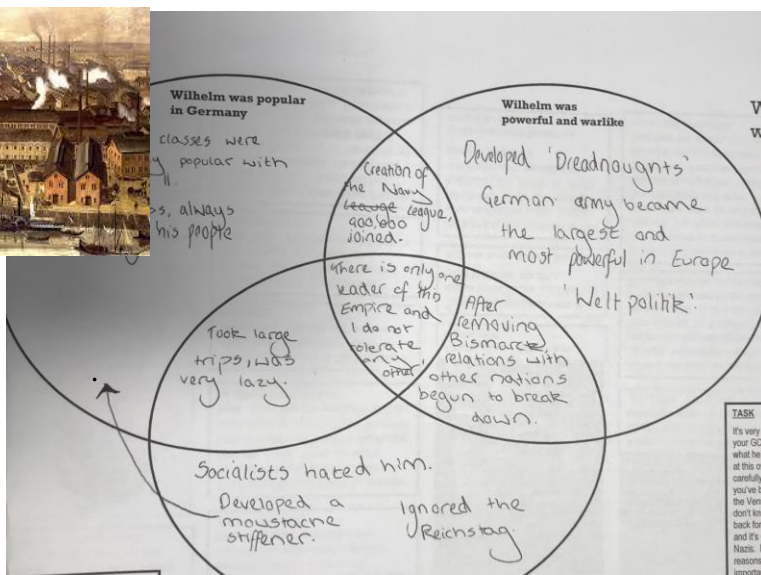 Wilhelm was popular
in Germany
classes were
popular with
always
his people
Creation of
the Navy
Leauge League,
900,000
joined.
Wilhelm was
powerful and warlike
Developed 'Dreadnoughts'
German army became
the largest and
most powerful in Europe
'Welt politik'.
There is only one
leader of this
Empire and
I do not
tolerate
any
other
Took large
trips, was
very lazy.
After
removing
Bismarck
relations with
other nations
begun to break
down.
Socialists hated him.
Developed a
moustache
stiffener.
Ignored the
Reichstag.
TASK
It's very
your GC
what he
at this o
carefully
you've b
the Ven
don't kn
back for
and it's
Nazis.
reasons
importa